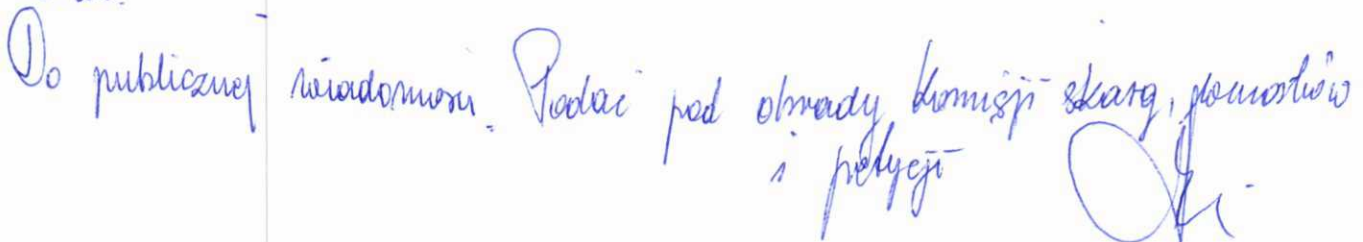 Do publicznej wiadomości. Podać pod obrady Komisji skarg, wniosków
i petycji